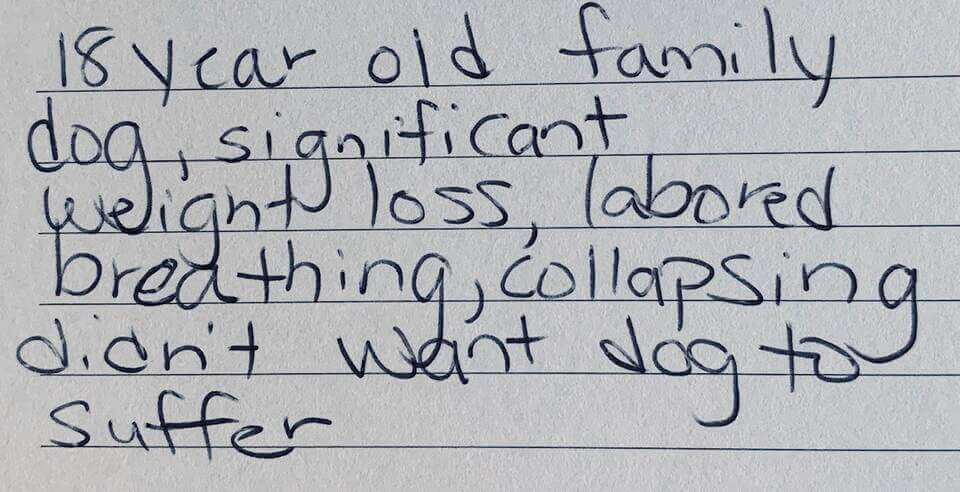 18 year old family
dog, significant
weight loss, labored
breathing, collapsing
didn't want dog to
suffer